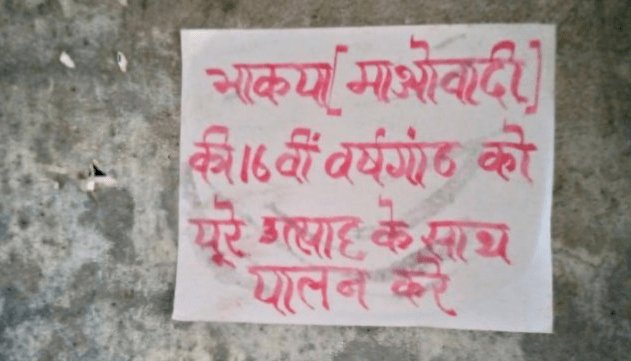 भाकपा[माओवादी]
की 16 वीं वर्षगांठ को
पूरे उत्साह के साथ
पालन करें